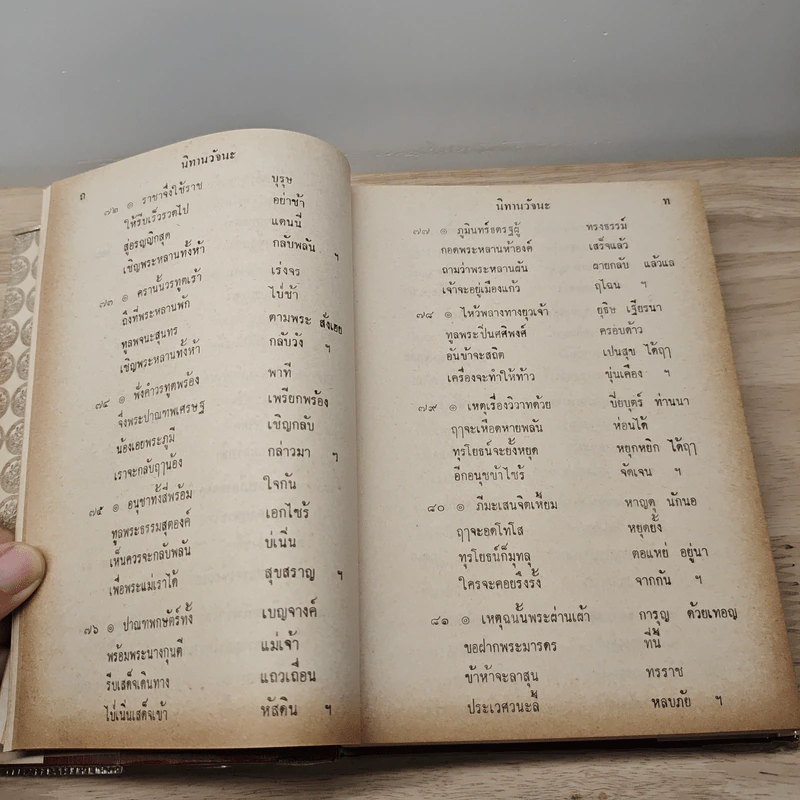 นิทานวัจนะ
ถ
๗๒ ๏ ราชาจึ่งใช้ราช บุรุษ
ให้รีบเร็วรวดไป อย่าช้า
สู่อรญญิกสุด แดนนี่
เชิญพระหลานทั้งห้า กลับพลัน ฯ
๗๓ ๏ ครานั้นวรทูตเร้า เร่งจร
ถึงที่พระหลานพัก ไป่ช้า
ทูลพจนะสุนทร ตามพระ สั่งเอย
เชิญพระหลานทั้งห้า กลับวัง ฯ
๗๔ ๏ พึ่งคำวรทูตพร้อง พาที
จึ่งพระปาณฑพเศรษฐ เพรียกพร้อง
น้องเอยพระภูมี เชิญกลับ
เราจะกลับฤๅน้อง กล่าวมา ฯ
๗๕ ๏ อนุชาทั้งสี่พร้อม ใจกัน
ทูลพระธรรมสุตองค์ เอกไซร้
เห็นควรจะกลับพลัน บ่เนิ่น
เพื่อพระแม่เราได้ สุขสราญ ฯ
๗๖ ๏ ปาณฑพกษัตร์ทั้ง เบญจางค์
พร้อมพระนางกุนตี แม่เจ้า
รีบเสด็จเดินทาง แถวเถื่อน
ไป่เนิ่นเสด็จเข้า หัสดิน ฯ
นิทานวัจนะ
ท
๗๗ ๏ ภูมินทร์ธตรฐผู้ ทรงธรรม์
กอดพระหลานห้าองค์ เสร็จแล้ว
ถามว่าพระหลานผัน ผายกลับ แล้วแล
เจ้าจะอยู่เมืองแก้ว ฤไฉน ฯ
๗๘ ๏ ไหว้พลางทางยุวเจ้า ยุธิษ เฐียรนา
ทูลพระปิ่นศศิพงศ์ ครอบด้าว
อันข้าจะสถิต เปนสุข ได้ฤๅ
เครื่องจะทำให้ท้าว ขุ่นเคือง ฯ
๗๙ ๏ เหตุเรื่องวิวาทด้วย ปิยบุตร์ ท่านนา
ฤๅจะเหือดหายพลัน ห่อนได้
ทุรโยธน์จะยั้งหยุด หยุกหยิก ได้ฤๅ
อีกอนุชข้าไซร้ จัดเจน ฯ
๘๐ ๏ ภีมะเสนจิตเหี้ยม หาญดุ นักนอ
ฤๅจะอดโทโส หยุดยั้ง
ทุรโยธน์ก็มุทลุ ตอแหย่ อยู่นา
ใครจะคอยรึงรั้ง จากกัน ฯ
๘๑ ๏ เหตุฉนั้นพระผ่านเผ้า การุญ ด้วยเทอญ
ขอฝากพระมารดร ที่นี้
ข้าห้าจะลาสุน ทรราช
ประเวศวนะลี้ หลบภัย ฯ